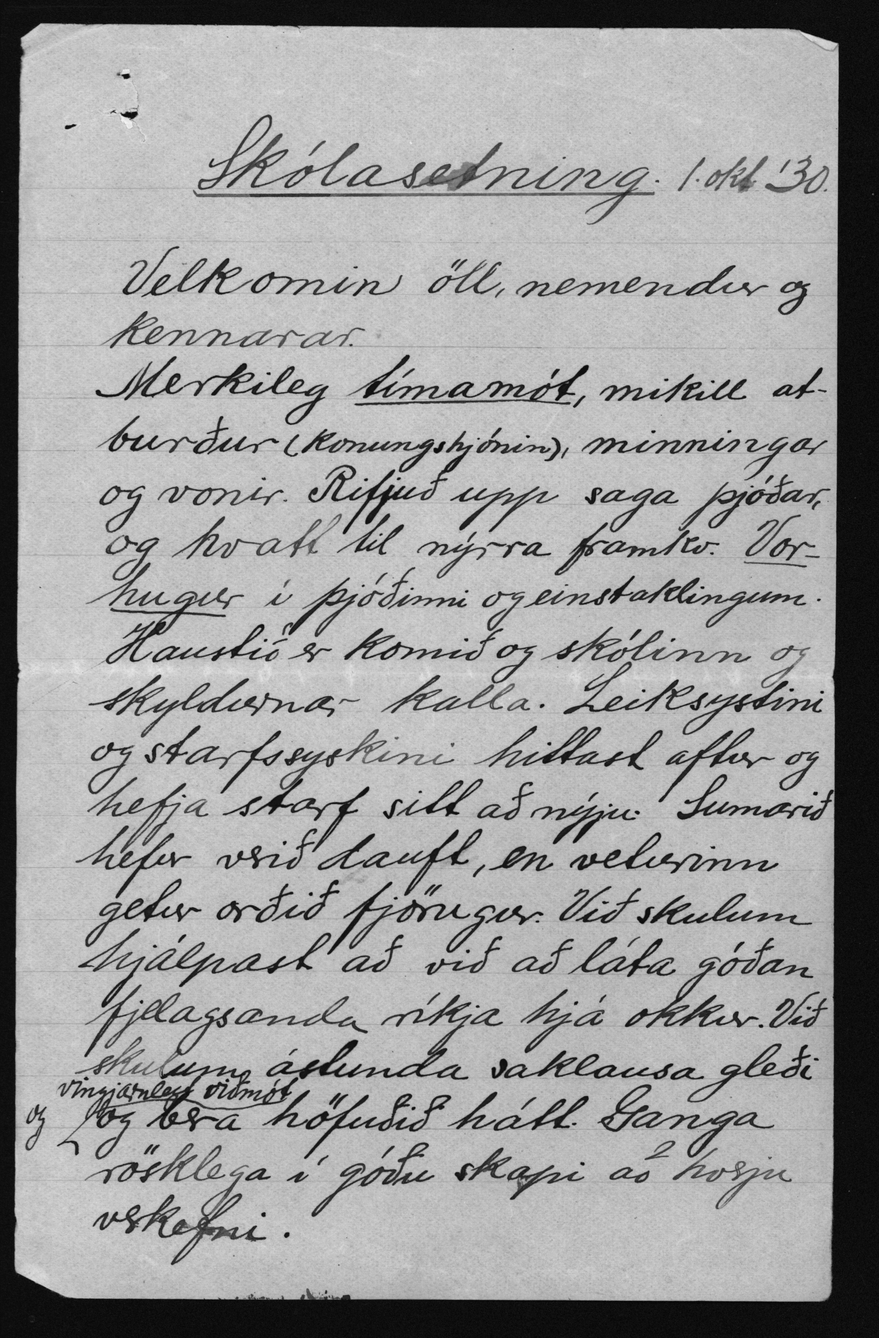 Skólasetning. 1. okt '30.
Velkomin öll, nemendur og
kennarar.
Merkileg tímamót, mikill at-
burður (konungshjónin), minningar
og vonir. Rifjuð upp saga þjóðar,
og hvatt til nýrra framkv. Vor-
hugur í þjóðinni og einstaklingum.
Haustið er komið og skólinn og
skyldurnar kalla. Leiksystini
og starfssyskini hittast aftur og
hefja starf sitt að nýju. Sumarið
hefur verið dauft, en veturinn
getur orðið fjörugur. Við skulum
hjálpast að við að láta góðan
fjelagsanda ríkja hjá okkur. Við
skulum ástunda saklausa gleði
og vingjarnlegt viðmót
og bera höfuðið hátt. Ganga
rösklega í góðu skapi að hverju
verkefni.